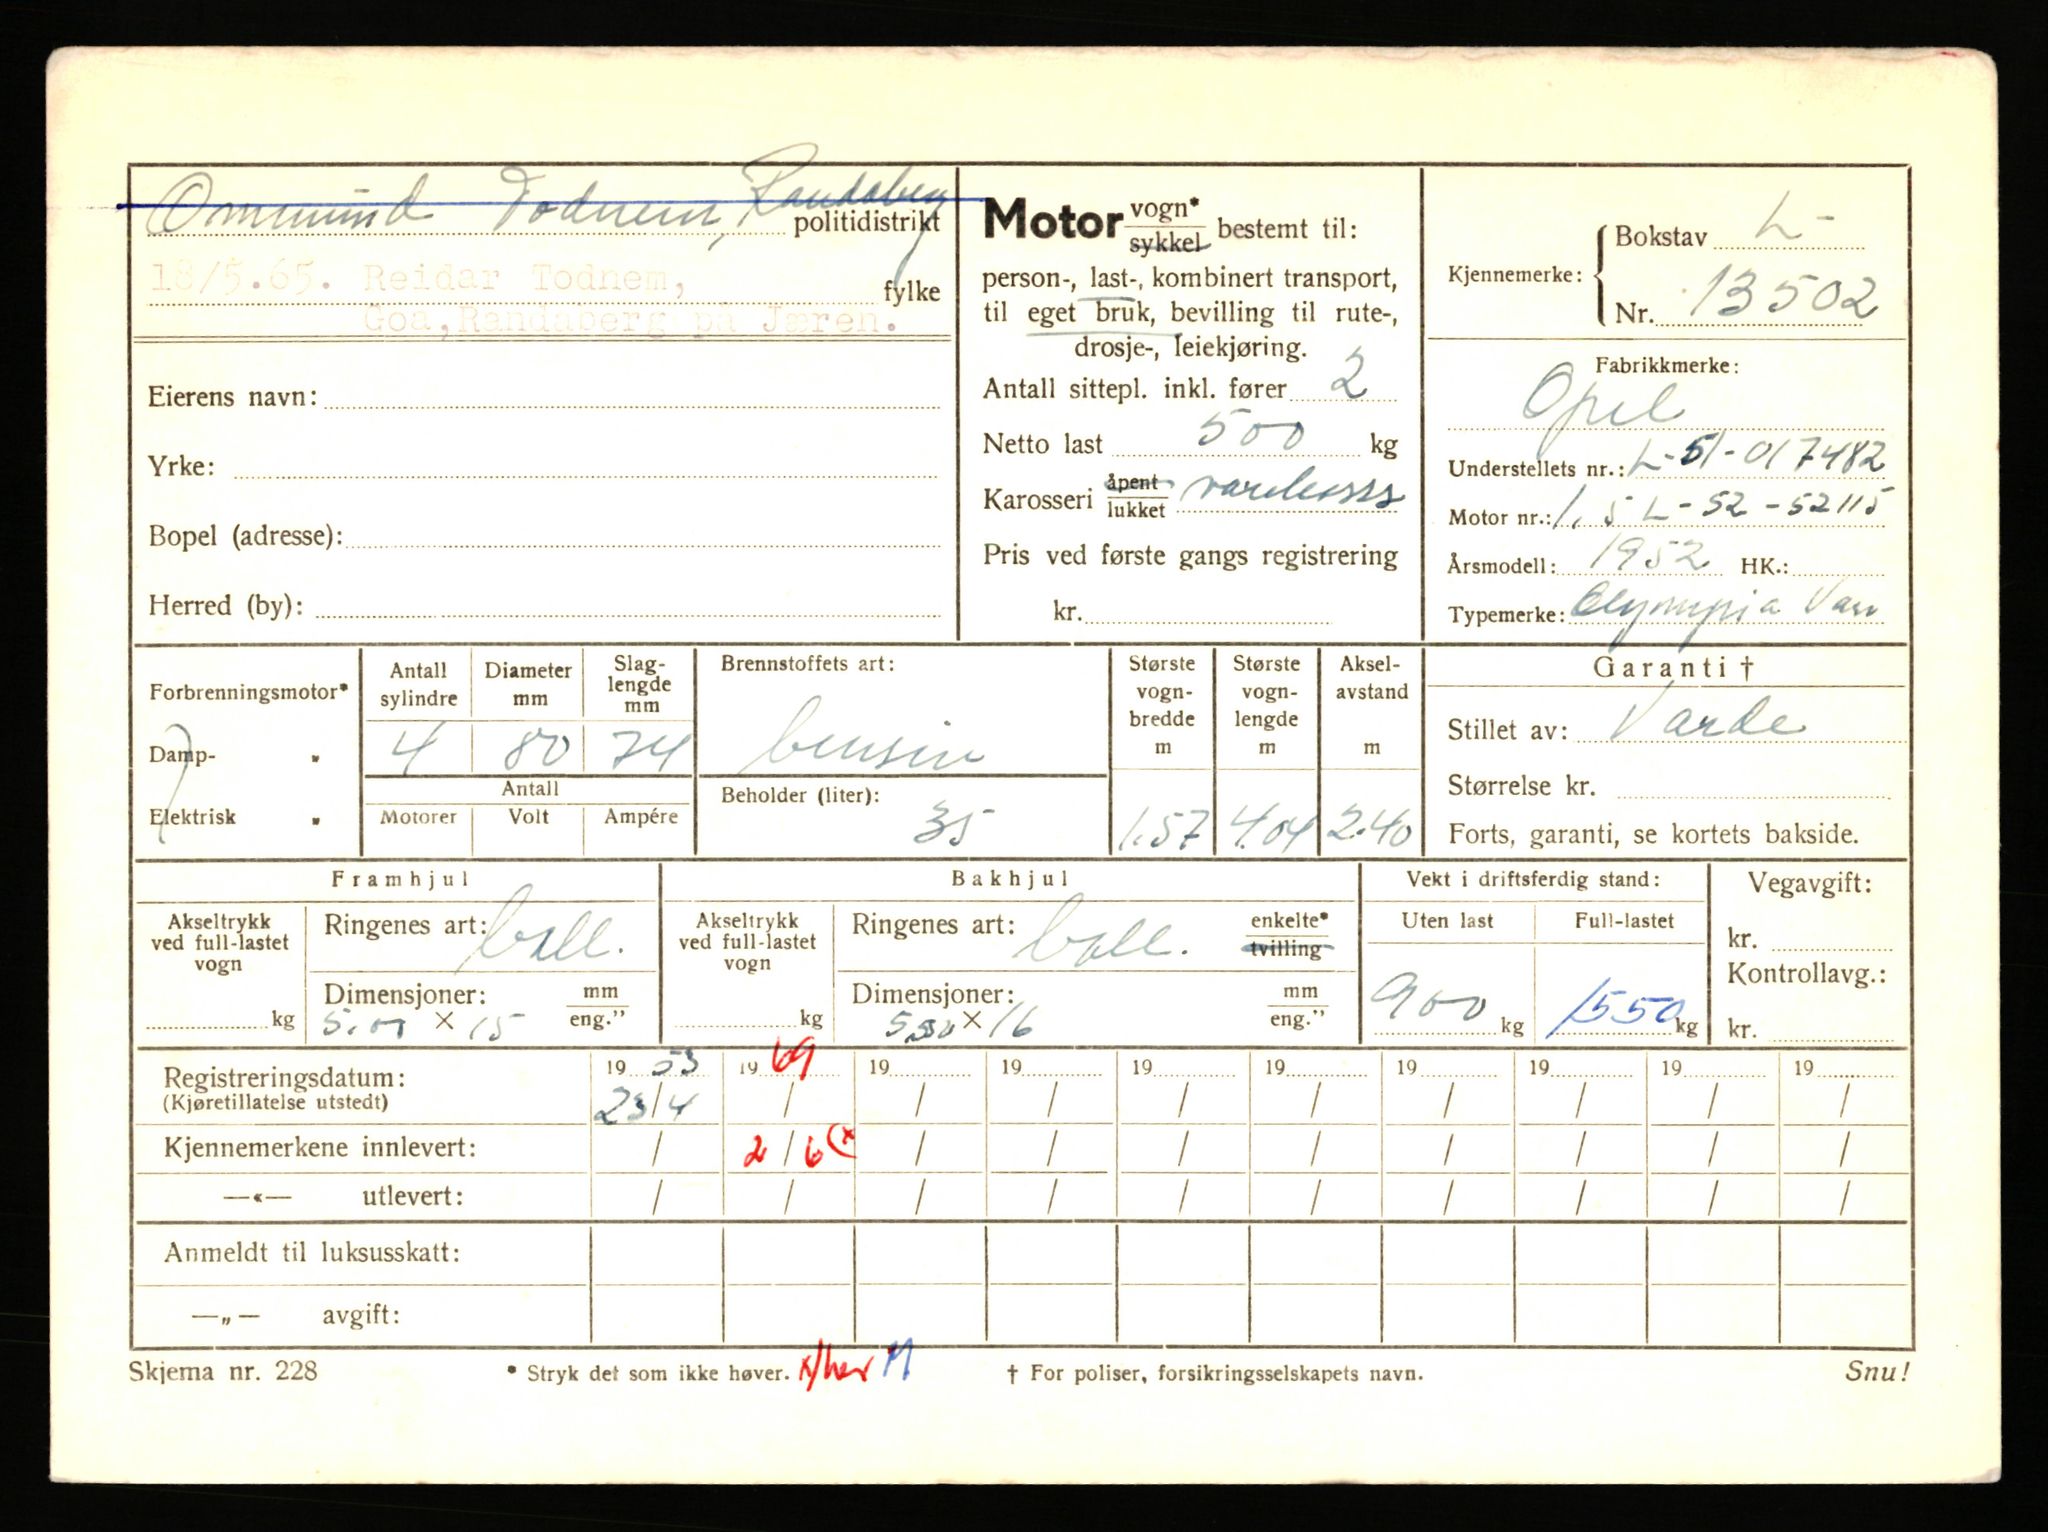 Ommund Todnem, Randaberg politidistrikt
18/5.65. Reidar Todnem, fylke
Goa, Randaberg på Jæren.
Eierens navn:
Yrke:
Bopel (adresse):
Herred (by):
Motor vogn* sykkel bestemt til:
person-, last-, kombinert transport,
til eget bruk, bevilling til rute-,
drosje-, leiekjøring.
Antall sittepl. inkl. fører 2
Netto last 500 kg
Karosseri åpent lukket varekasse
Pris ved første gangs registrering
kr.
Kjennemerke: Bokstav L-
Nr. 13502
Fabrikkmerke:
Opel
Understellets nr.: L-51-017482
Motor nr.: 1,5 L-52-52115
Årsmodell: 1952 HK.:
Typemerke: Olympia Van
Forbrenningsmotor*
Damp- "
Elektrisk "
Antall sylindre Diameter mm Slag-lengde mm
4 80 74
Antall
Motorer Volt Ampére
Brennstoffets art:
bensin
Beholder (liter):
35
Største vogn-bredde m
1.57
Største vogn-lengde m
4.04
Aksel-avstand m
2.40
Garanti †
Stillet av: Varde
Størrelse kr.
Forts, garanti, se kortets bakside.
Framhjul
Akseltrykk ved full-lastet vogn
kg
Ringenes art: ball.
Dimensjoner: mm eng."
5.00 × 15
Bakhjul
Akseltrykk ved full-lastet vogn
kg
Ringenes art: ball. enkelte* tvilling
Dimensjoner: mm eng."
× 16
Vekt i driftsferdig stand:
Uten last Full-lastet
900 kg 1550 kg
Vegavgift:
kr.
Kontrollavg.:
kr.
Registreringsdatum: 19 53 19 69 19 19 19 19 19 19 19 19
(Kjøretillatelse utstedt) 23/4 / / / / / / / / /
Kjennemerkene innlevert: / 2/6 (x / / / / / / / /
—«— utlevert: / / / / / / / / / /
Anmeldt til luksusskatt:
—„— avgift:
Skjema nr. 228 * Stryk det som ikke høver. x/her M † For poliser, forsikringsselskapets navn. Snu!